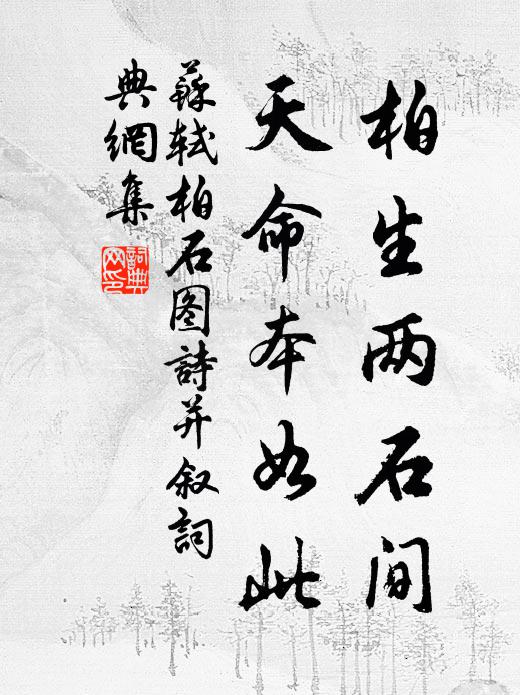 柏生两石间
天命本如此
蘇軾柏石图詩并叙詞
典網集
詞典网印